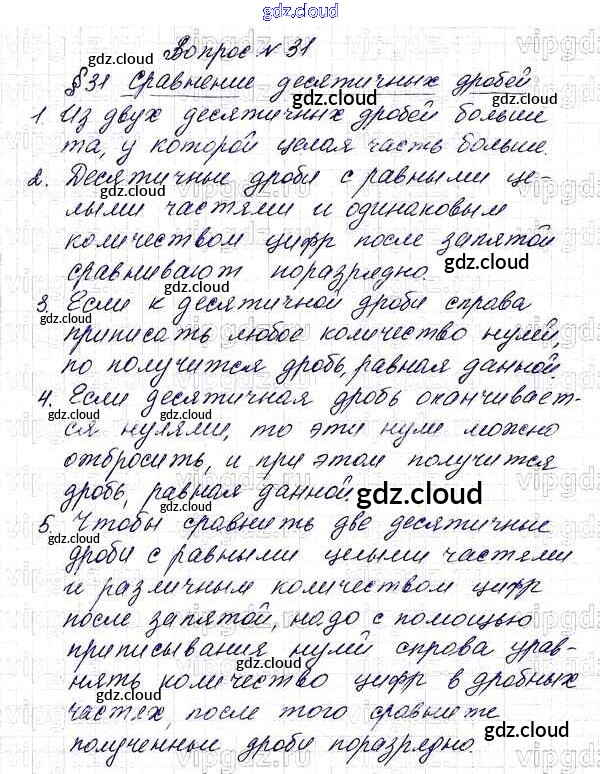 gdz.cloud
Вопрос № 31
§31 Сравнение десятичных дробей
1. Из двух десятичных дробей больше
та, у которой целая часть больше.
2. Десятичные дроби с равными це-
лыми частями и одинаковым
количеством цифр после запятой
сравнивают поразрядно.
3. Если к десятичной дроби справа
приписать любое количество нулей,
то получится дробь, равная данной.
4. Если десятичная дробь оканчивает-
ся нулями, то эти нули можно
отбросить, и при этом получится
дробь, равная данной.
5. Чтобы сравнить две десятичные
дроби с равными целыми частями
и различным количеством цифр
после запятой, надо с помощью
приписывания нулей справа урав-
нять количество цифр в дробных
частях, после того сравните
полученные дроби поразрядно.